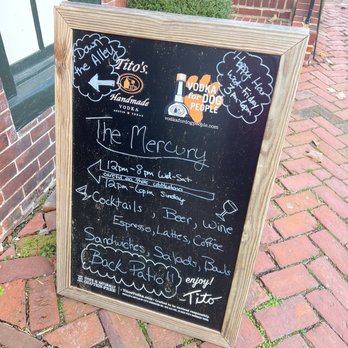 Down the Alley!
Tito's
Handmade
VODKA
AUSTIN ★ TEXAS
VODKA
for DOG
PEOPLE
vodkafordogpeople.com
Happy Hour
Wed-Friday
3pm-6pm
The Mercury
12pm-8pm Wed-Sat
12pm-6pm Sunday
Cocktails, Beer, Wine
Espresso, Lattes, Coffee
Sandwiches, Salads, Bowls
Back Patio!
enjoy!
Tito